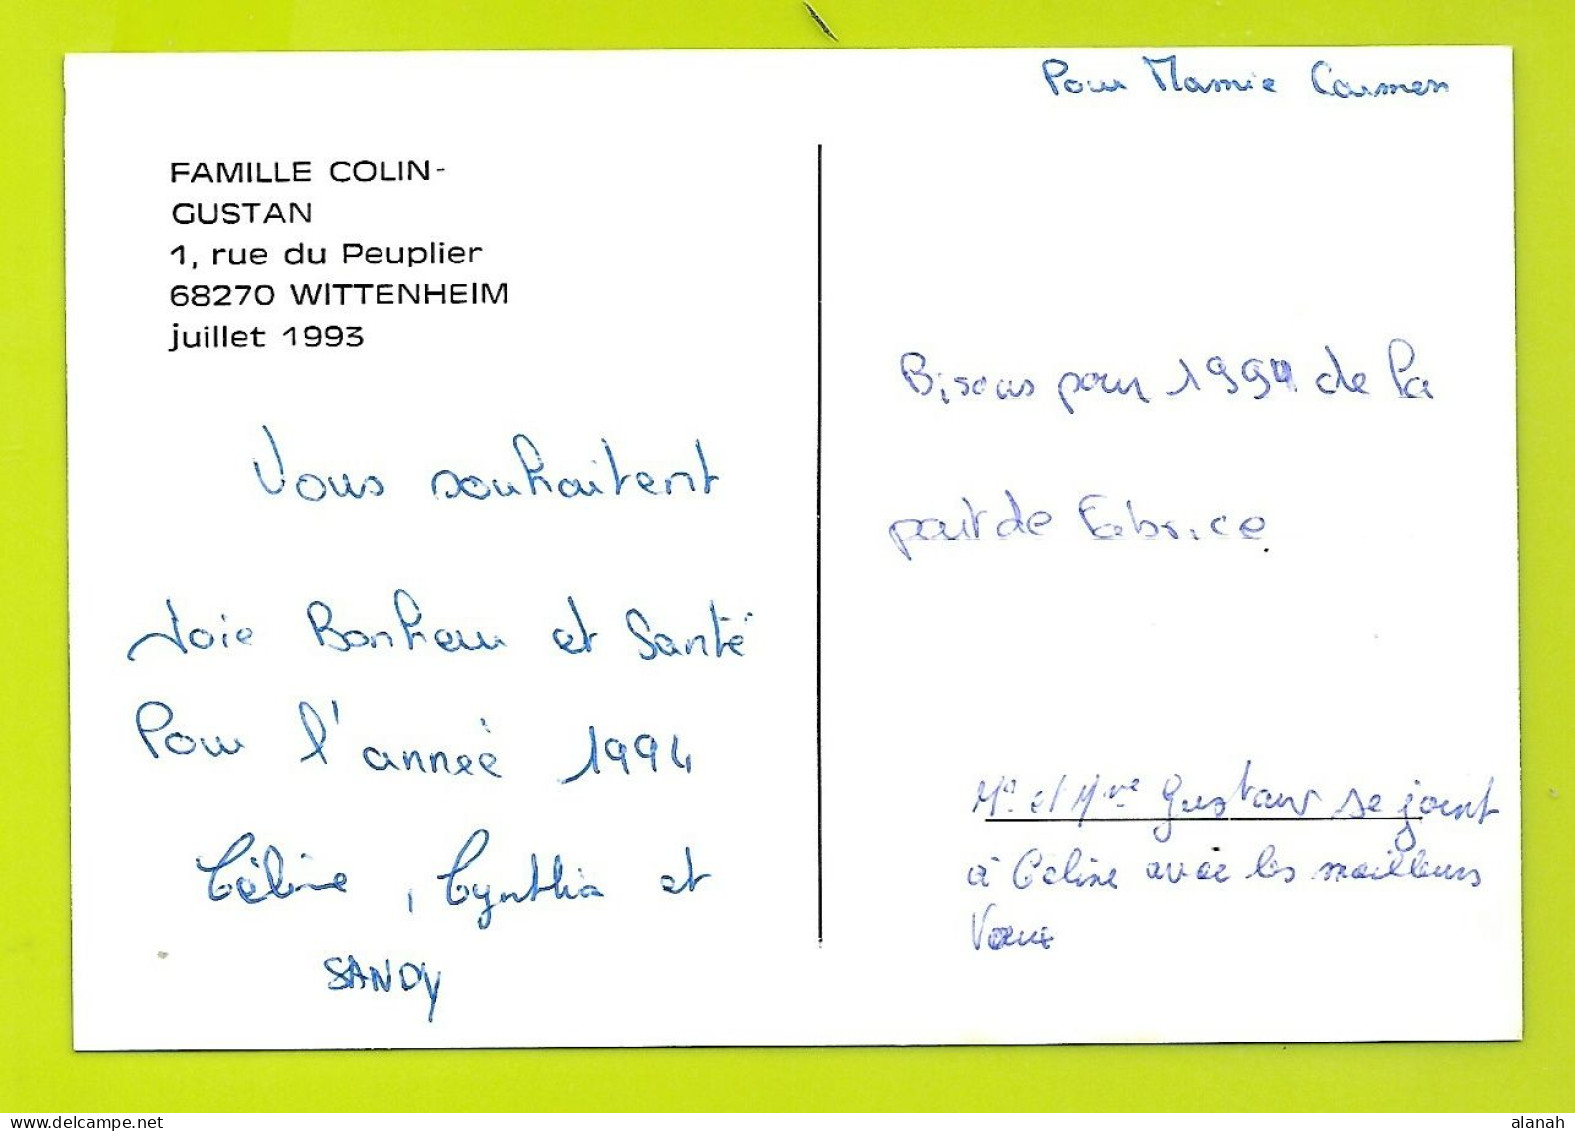 Pour Mamie Carmen
FAMILLE COLIN-
GUSTAN
1, rue du Peuplier
68270 WITTENHEIM
juillet 1993
Vous souhaitent
Joie Bonheur et Santé
Pour l'année 1994
Céline, Cynthia et
SANDY
Bisous pour 1994 de la
part de Fabrice.
Mr et Mme Gustan se joint
à Céline avec les meilleurs
Voeux
delcampe.net
alanah